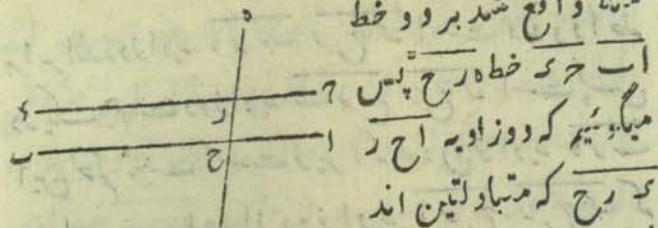 واقع شد بر دو خط
اب حء خط ه ر ح پس
میگوئیم که دو زاویه ا ح ر
ء ر ح که متبادلتین اند
ه
ء ر ح
ب ح ا